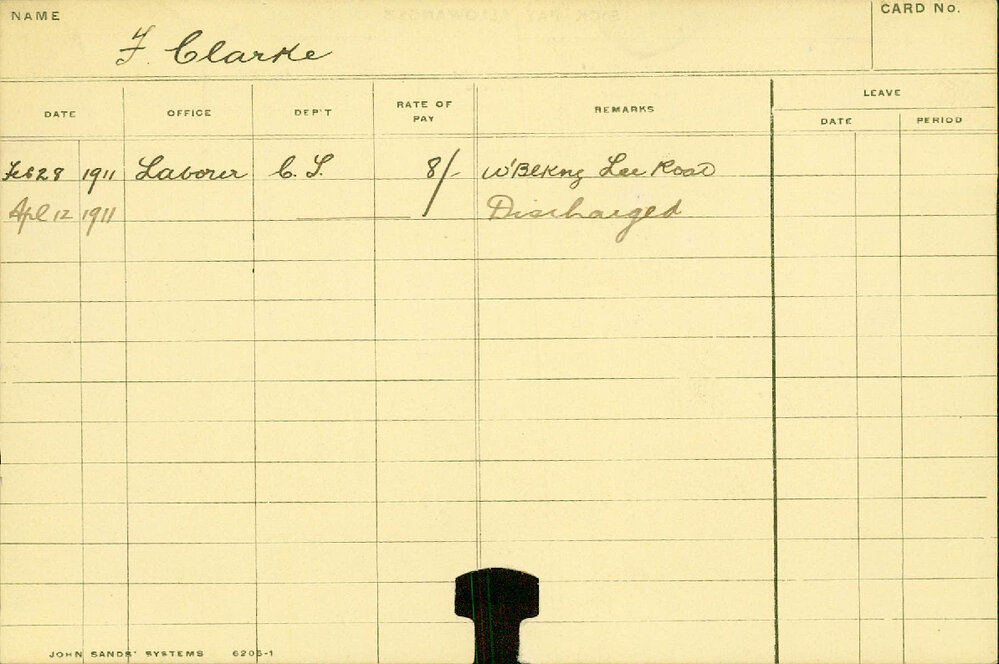 NAME F. Clarke CARD No.
DATE OFFICE DEP'T RATE OF PAY REMARKS LEAVE
DATE PERIOD
Feb 28 1911 Laborer C.S. 8/- W'Blkng Lee Road
Apl 12 1911 Discharged
JOHN SANDS' SYSTEMS 6206-1